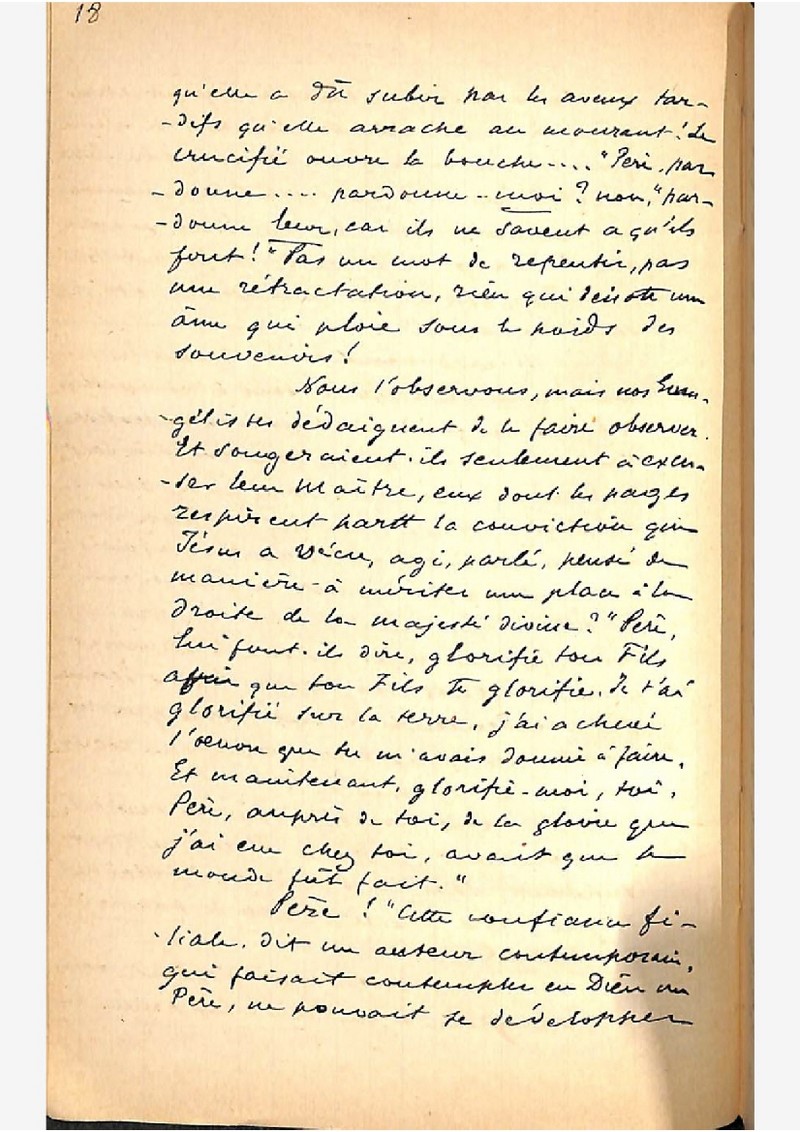 18
qu'elle a dû subir par les aveux tar-
-difs qu'elle arrache au mourant! Le
crucifié ouvre la bouche.... "Père, par
-donne.... pardonne-moi? non, "par-
-donne leur, car ils ne savent a qu'ils
font!" Pas un mot de repentir, pas
une rétractation, rien qui dénote une
âme qui ploie sous le poids des
souvenirs!
Nous l'observons, mais nos Évan-
-gélistes dédaignent de le faire observer.
Et songeraient-ils seulement à excu-
-ser leur Maître, eux dont les pages
respirent partt la conviction que
Jésus a vécu, agi, parlé, pensé de
manière à mériter une place à la
droite de la majesté divine? "Père,
lui font-ils dire, glorifie ton Fils
afin que ton Fils te glorifie. Je t'ai
glorifié sur la terre, j'ai achevé
l'œuvre que tu m'avais donnée à faire.
Et maintenant, glorifie-moi, toi,
Père, auprès de toi, de la gloire que
j'ai eue chez toi, avant que le
monde fût fait."
Père! "Cette confiance fi-
-liale, dit un auteur contemporain,
qui faisait contempler en Dieu un
Père, ne pouvait se développer